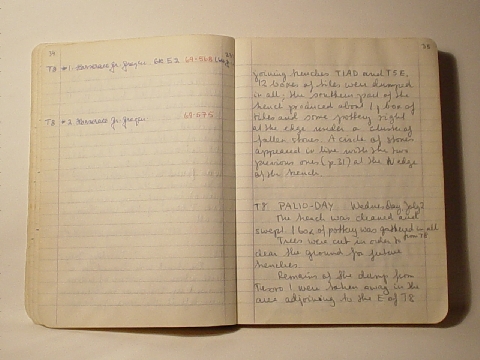 34
T8 #1. Terracotta fr. 68.52 69-568
T8 #2. Terracotta fr. 69-575
35
joining trenches T1AD and T5E.
12 boxes of tiles were dumped
in all; the southern part of the
trench produced about 1½ box of
tiles and some pottery right
at the edge under a cluster of
fallen stones. A circle of stones
appeared in line with the two
previous ones (p. 21) at the N edge
of the trench.
T8 PALIO-DAY Wednesday July 2
The trench was cleaned and
swept. 1 box of pottery was gathered in all
from T8
Trees were cut in order to
clear the ground for future
trenches.
Remains of the dump from
Tesoro 1 were taken away in the
area adjoining to the E of T8